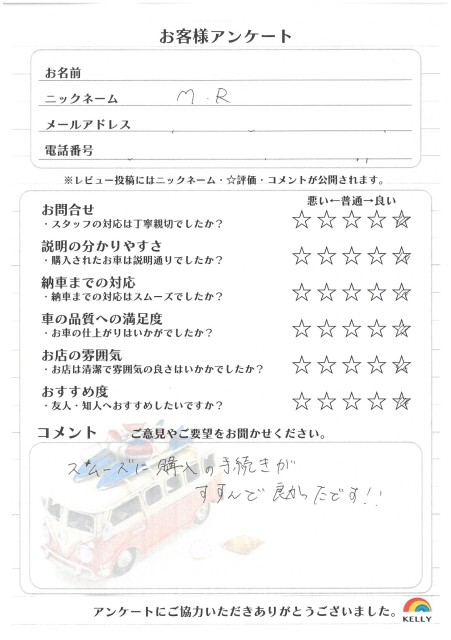 お客様アンケート
お名前
ニックネーム M.R
メールアドレス
電話番号
※レビュー投稿にはニックネーム・☆評価・コメントが公開されます。
悪い←普通→良い
お問合せ
・スタッフの対応は丁寧親切でしたか？ ☆☆☆☆☆
説明の分かりやすさ
・購入されたお車は説明通りでしたか？ ☆☆☆☆☆
納車までの対応
・納車までの対応はスムーズでしたか？ ☆☆☆☆☆
車の品質への満足度
・お車の仕上がりはいかがでしたか？ ☆☆☆☆☆
お店の雰囲気
・お店は清潔で雰囲気の良さはいかかでしたか？ ☆☆☆☆☆
おすすめ度
・友人・知人へおすすめしたいですか？ ☆☆☆☆☆
コメント ご意見やご要望をお聞かせください。
スムーズに購入の手続きが
すすんで良かったです!!
アンケートにご協力いただきありがとうございました。
KELLY